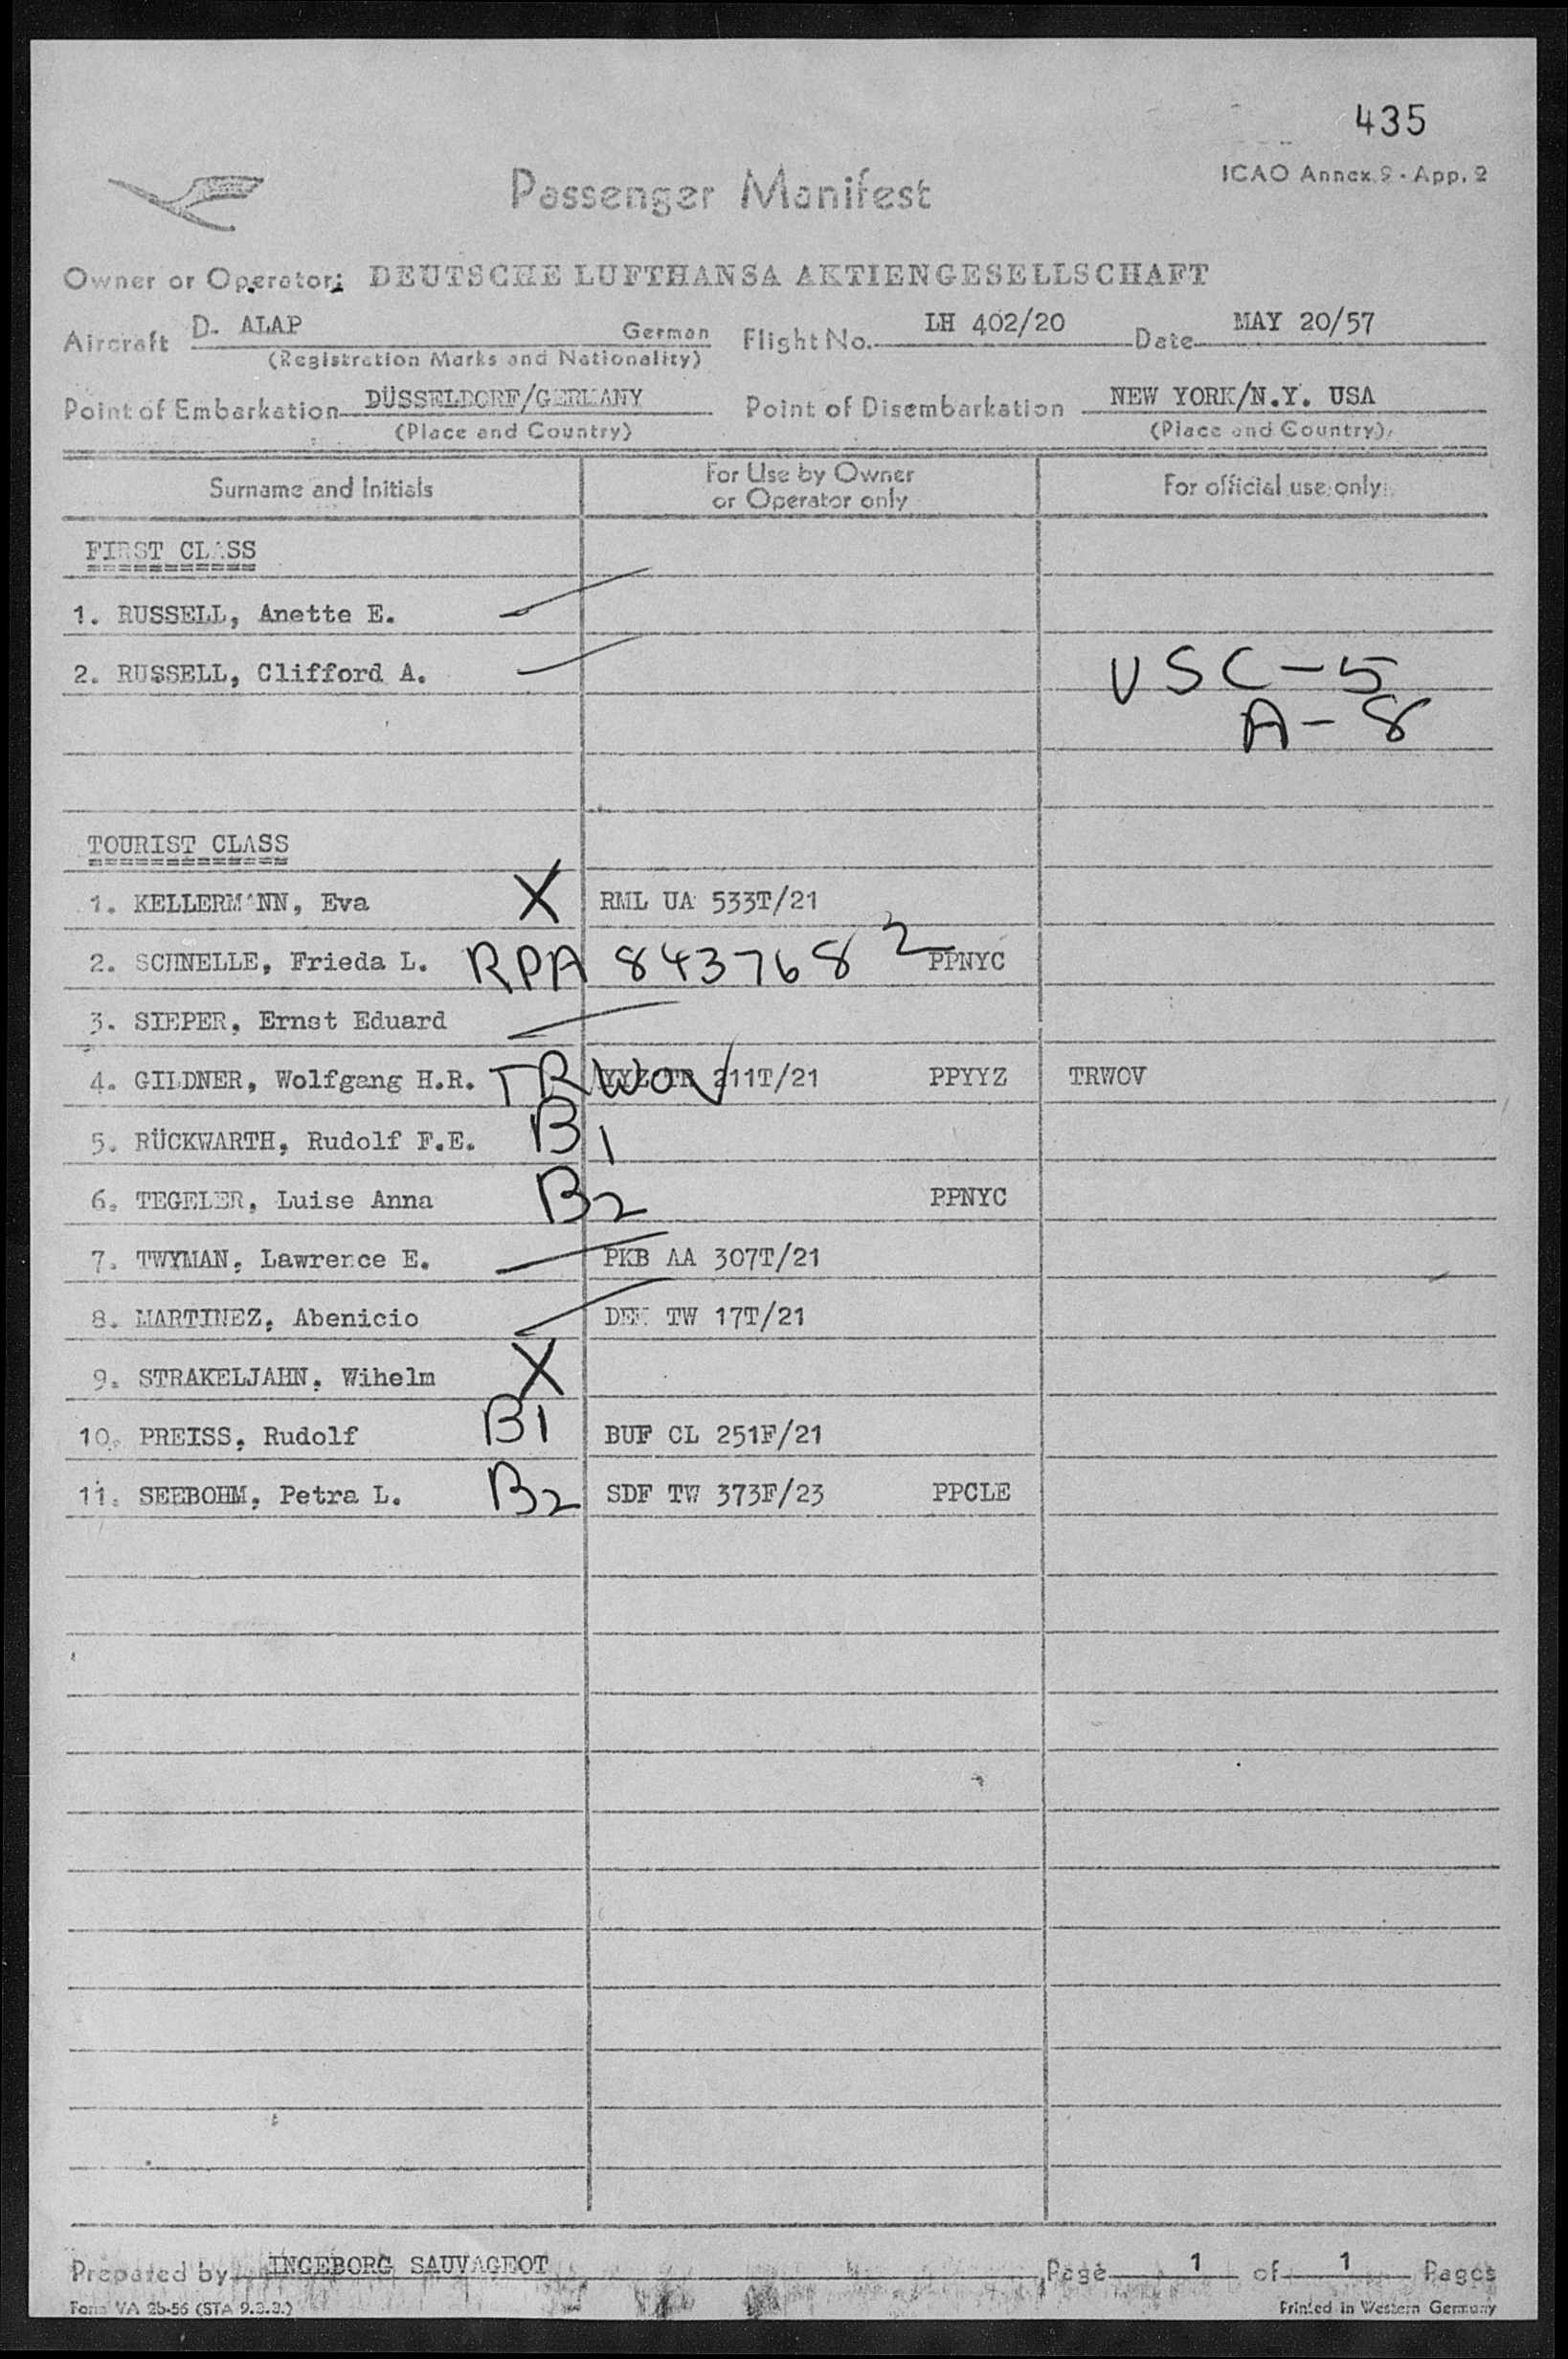 435
ICAO Annex 9 - App. 2
Passenger Manifest
Owner or Operator: DEUTSCHE LUFTHANSA AKTIENGESELLSCHAFT
Aircraft D. ALAP German Flight No. LH 402/20 Date MAY 20/57
(Registration Marks and Nationality)
Point of Embarkation DÜSSELDORF/GERMANY Point of Disembarkation NEW YORK/N.Y. USA
(Place and Country) (Place and Country)
Surname and Initials For Use by Owner or Operator only For official use only
FIRST CLASS
1. RUSSELL, Anette E.
2. RUSSELL, Clifford A. USC-5
A-8
TOURIST CLASS
1. KELLERMANN, Eva X RML UA 533T/21
2. SCHNELLE, Frieda L. RPA 8437682 PPNYC
3. SIEPER, Ernst Eduard
4. GILDNER, Wolfgang H.R. TRWOV YYZ TR 211T/21 PPYYZ TRWOV
5. RÜCKWARTH, Rudolf F.E. B1
6. TEGELER, Luise Anna B2 PPNYC
7. TWYMAN, Lawrence E. PKB AA 307T/21
8. MARTINEZ, Abenicio TW 17T/21
9. STRAKELJAHN, Wihelm X
10. PREISS, Rudolf B1 BUF CL 251F/21
11. SEEBOHM, Petra L. B2 SDF TW 373F/23 PPCLE
Prepared by INGEBORG SAUVAGEOT Page 1 of 1 Pages
Form VA 2b-56 (STA 9.3.3.) Printed in Western Germany